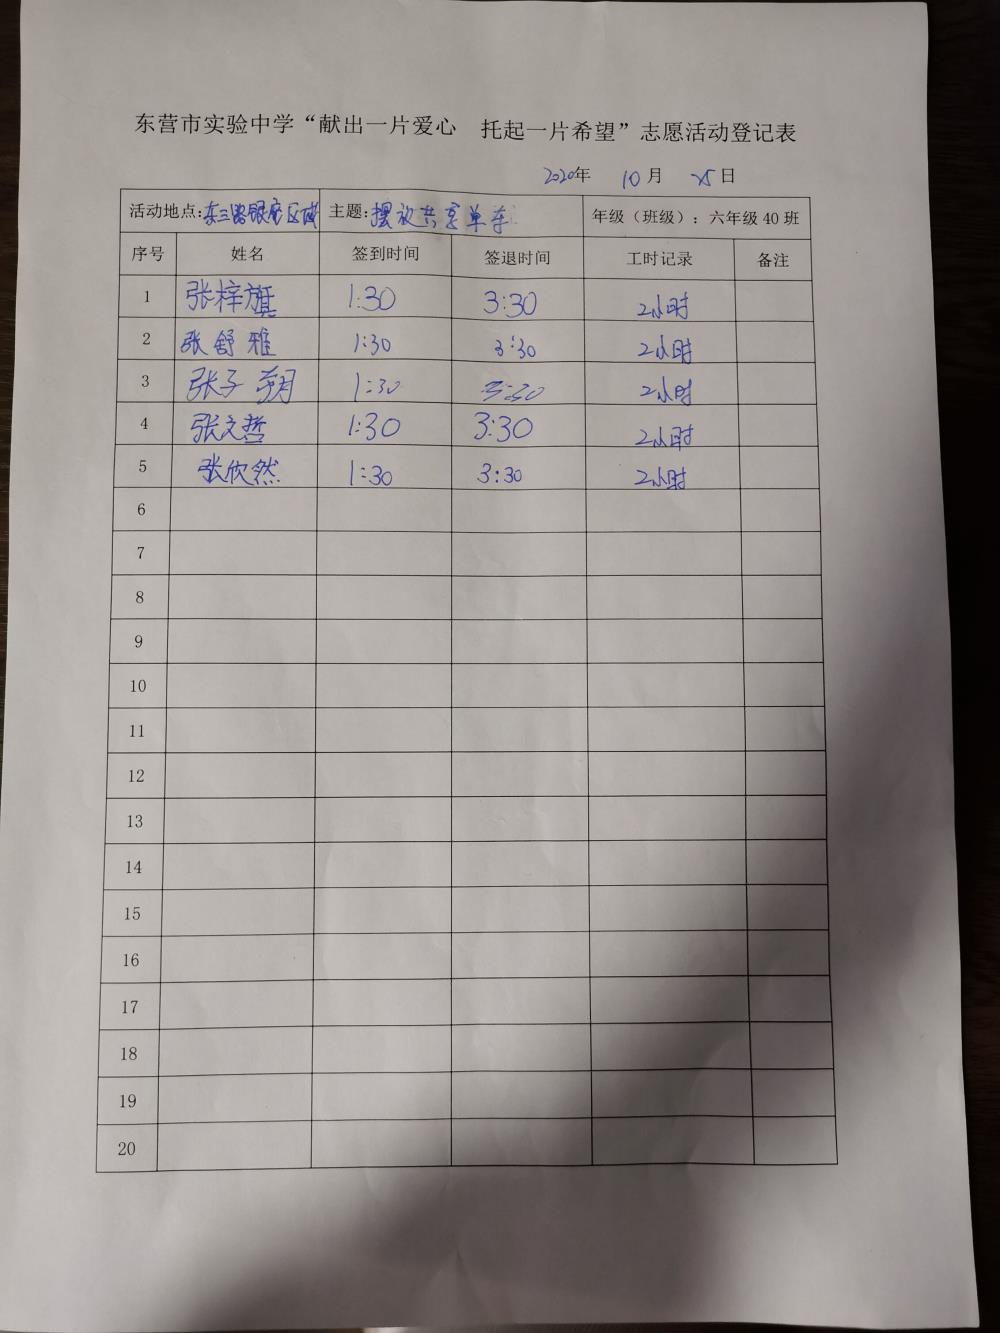 东营市实验中学“献出一片爱心 托起一片希望”志愿活动登记表
2020年 10月 25日
活动地点:东三路银座区域 主题:摆放共享单车 年级（班级）：六年级 40 班
序号 姓名 签到时间 签退时间 工时记录 备注
1 张梓旗 1:30 3:30 2小时
2 张舒雅 1:30 3:30 2小时
3 张子朔 1:30 3:30 2小时
4 张文哲 1:30 3:30 2小时
5 张欣然 1:30 3:30 2小时
6
7
8
9
10
11
12
13
14
15
16
17
18
19
20